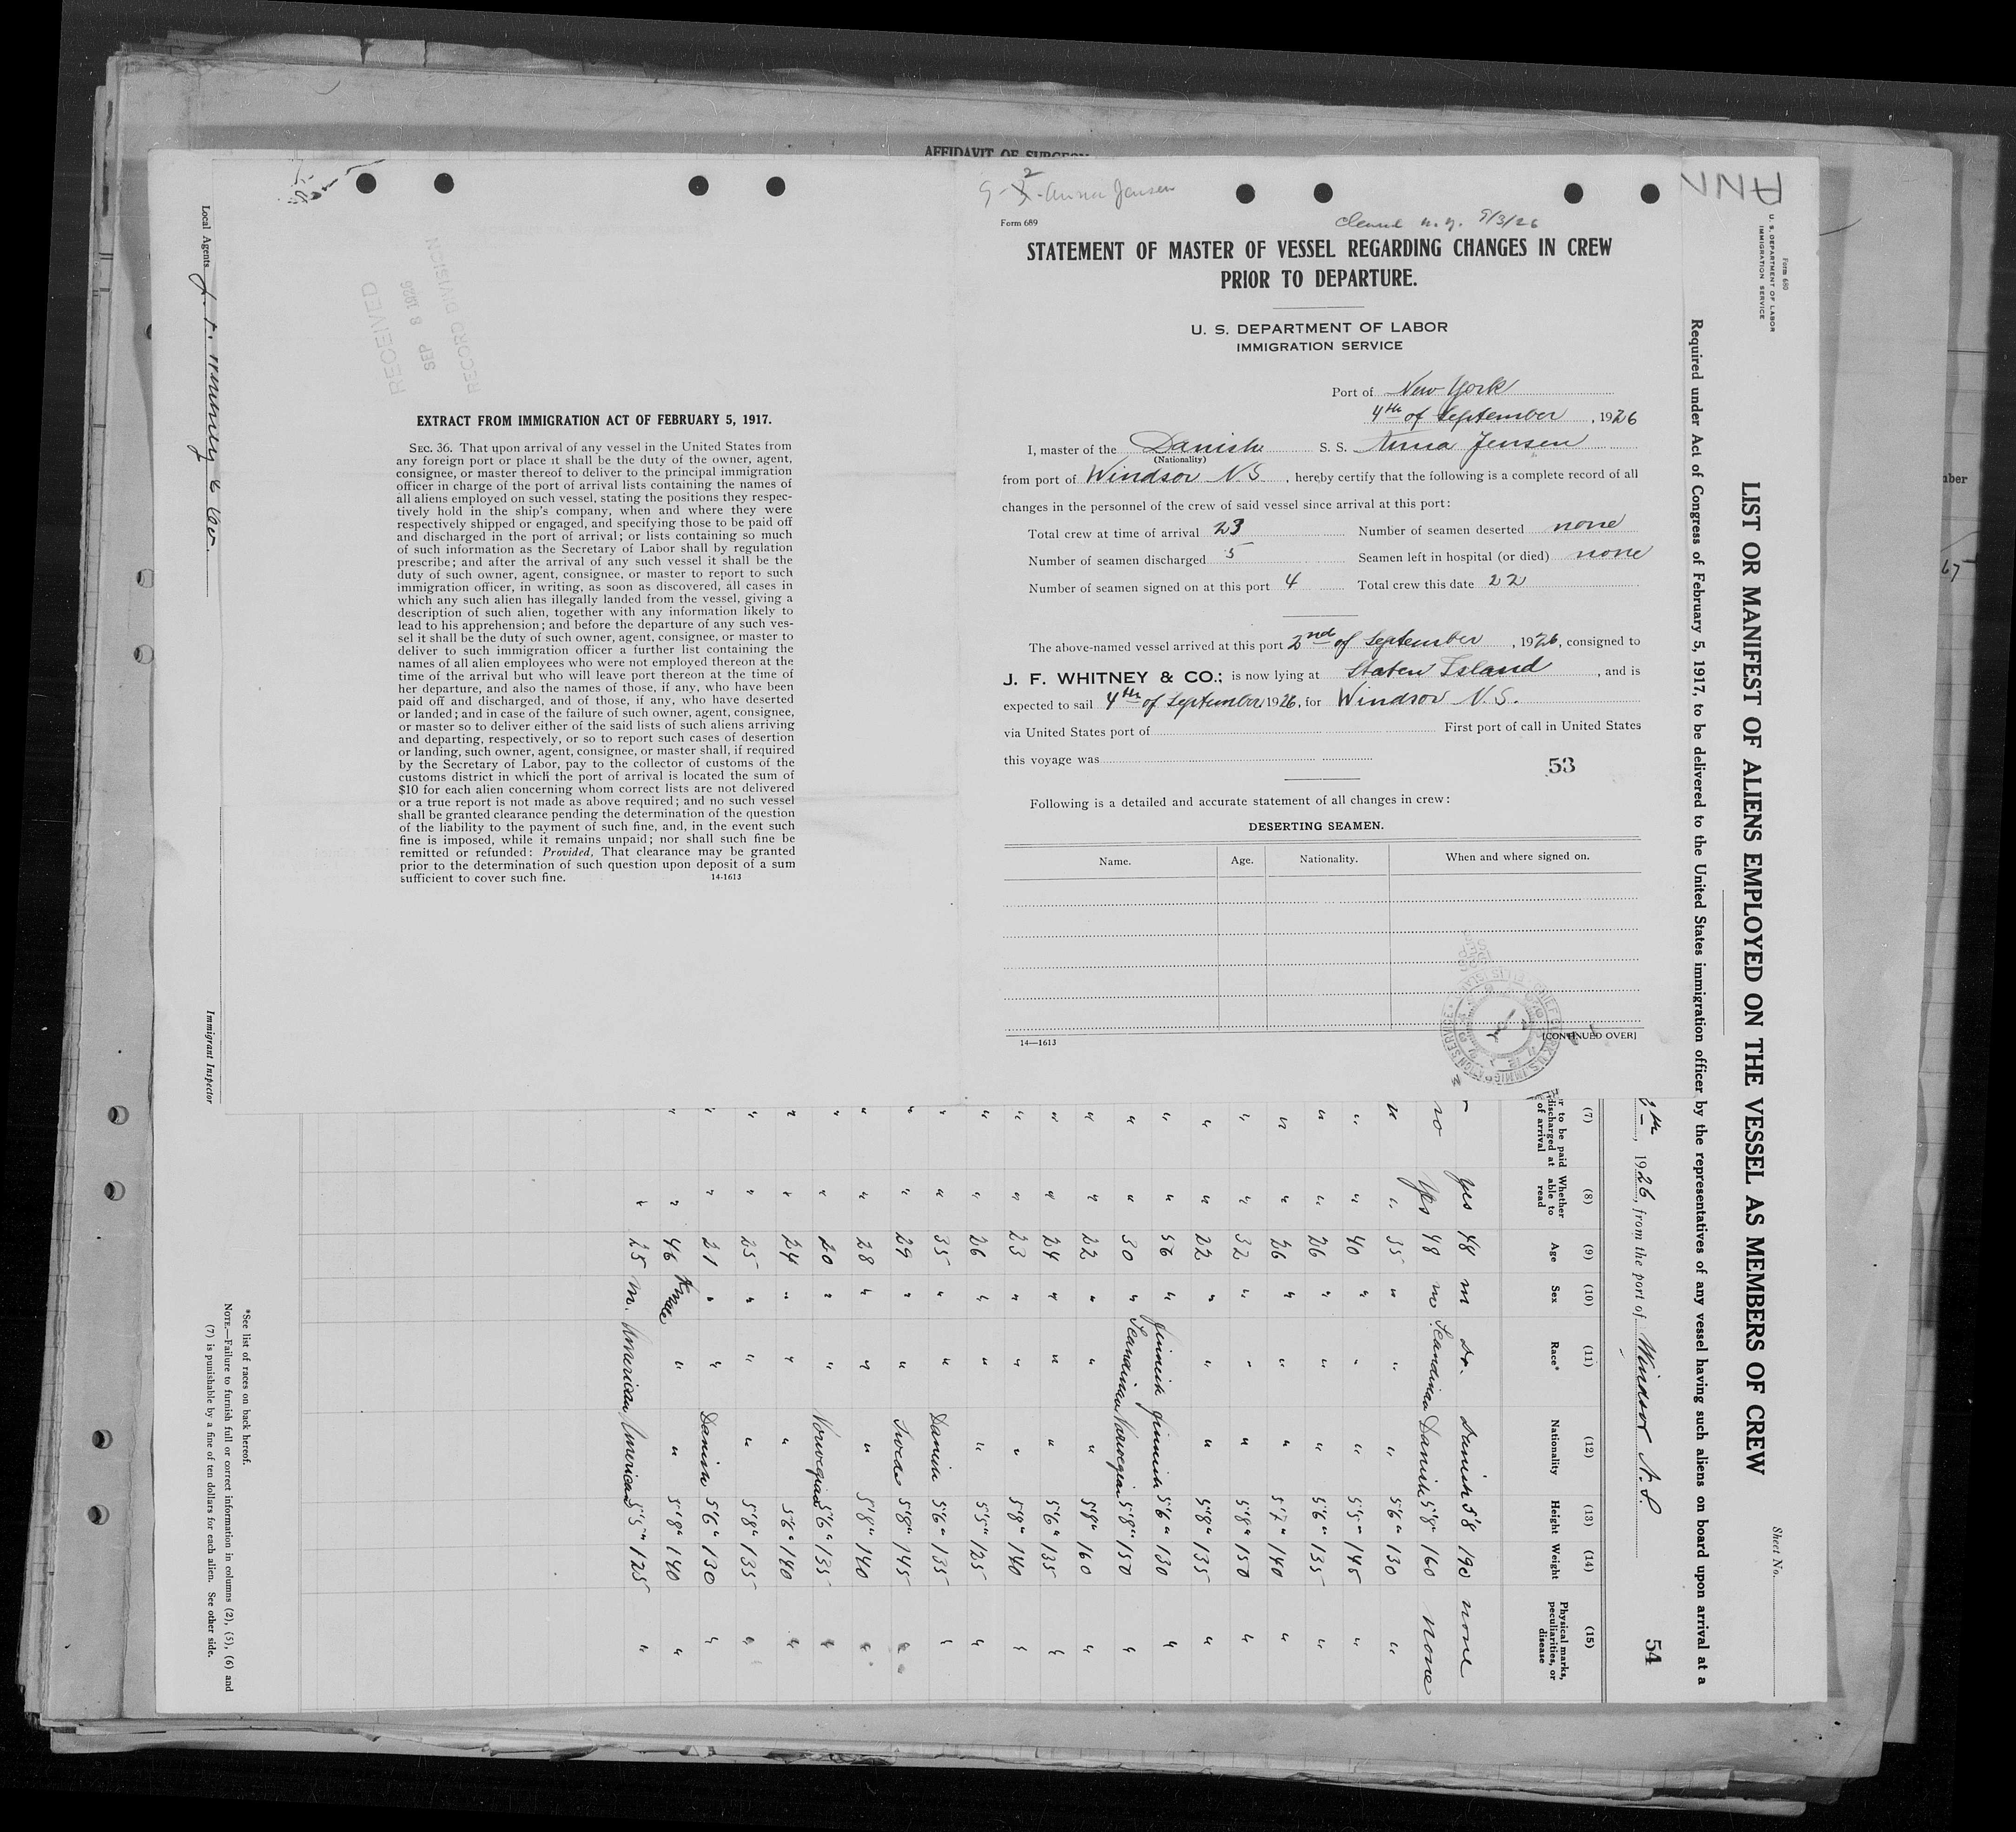 AFFIDAVIT OF SURGEON
Local Agents J. F. Whitney & Co.
Immigrant Inspector
RECEIVED
SEP 8 1926
RECORD DIVISION
EXTRACT FROM IMMIGRATION ACT OF FEBRUARY 5, 1917.
SEC. 36. That upon arrival of any vessel in the United States from
any foreign port or place it shall be the duty of the owner, agent,
consignee, or master thereof to deliver to the principal immigration
officer in charge of the port of arrival lists containing the names of
all aliens employed on such vessel, stating the positions they respec-
tively hold in the ship's company, when and where they were
respectively shipped or engaged, and specifying those to be paid off
and discharged in the port of arrival; or lists containing so much
of such information as the Secretary of Labor shall by regulation
prescribe; and after the arrival of any such vessel it shall be the
duty of such owner, agent, consignee, or master to report to such
immigration officer, in writing, as soon as discovered, all cases in
which any such alien has illegally landed from the vessel, giving a
description of such alien, together with any information likely to
lead to his apprehension; and before the departure of any such ves-
sel it shall be the duty of such owner, agent, consignee, or master to
deliver to such immigration officer a further list containing the
names of all alien employees who were not employed thereon at the
time of the arrival but who will leave port thereon at the time of
her departure, and also the names of those, if any, who have been
paid off and discharged, and of those, if any, who have deserted
or landed; and in case of the failure of such owner, agent, consignee,
or master so to deliver either of the said lists of such aliens arriving
and departing, respectively, or so to report such cases of desertion
or landing, such owner, agent, consignee, or master shall, if required
by the Secretary of Labor, pay to the collector of customs of the
customs district in which the port of arrival is located the sum of
$10 for each alien concerning whom correct lists are not delivered
or a true report is not made as above required; and no such vessel
shall be granted clearance pending the determination of the question
of the liability to the payment of such fine, and, in the event such
fine is imposed, while it remains unpaid; nor shall such fine be
remitted or refunded: Provided, That clearance may be granted
prior to the determination of such question upon deposit of a sum
sufficient to cover such fine. 14-1613
9-2-Anna Jensen
Cleared N.Y. 9/3/26
Form 689
STATEMENT OF MASTER OF VESSEL REGARDING CHANGES IN CREW
PRIOR TO DEPARTURE.
U. S. DEPARTMENT OF LABOR
IMMIGRATION SERVICE
Port of New York
4th of September, 1926
I, master of the Danish S. S. Anna Jensen
(Nationality)
from port of Windsor N.S., hereby certify that the following is a complete record of all
changes in the personnel of the crew of said vessel since arrival at this port:
Total crew at time of arrival 23 Number of seamen deserted none
Number of seamen discharged 5 Seamen left in hospital (or died) none
Number of seamen signed on at this port 4 Total crew this date 22
The above-named vessel arrived at this port 2nd of September, 1926, consigned to
J. F. WHITNEY & CO.; is now lying at Staten Island, and is
expected to sail 4th of September 1926, for Windsor N.S.
via United States port of First port of call in United States
this voyage was
53
Following is a detailed and accurate statement of all changes in crew:
DESERTING SEAMEN.
Name. Age. Nationality. When and where signed on.
14—1613 [CONTINUED OVER]
ANN
Form 680
U. S. DEPARTMENT OF LABOR
IMMIGRATION SERVICE
Sheet No.
LIST OR MANIFEST OF ALIENS EMPLOYED ON THE VESSEL AS MEMBERS OF CREW
Required under Act of Congress of February 5, 1917, to be delivered to the United States immigration officer by the representatives of any vessel having such aliens on board upon arrival at a
1926, from the port of Windsor N.S. 54
(7) (8) (9) (10) (11) (12) (13) (14) (15)
to be paid discharged at of arrival Whether able to read Age Sex Race* Nationality Height Weight Physical marks, peculiarities, or disease
yes 48 m Do. Danish 5'8 190 none
no yes 48 m Scandina Danish 5'8" 160 none
" " 35 " " " 5'6" 130 "
" " 40 " " " 5'5" 145 "
" " 26 " " " 5'6" 135 "
" " 26 " " " 5'7" 140 "
" " 32 " " " 5'8" 150 "
" " 22 " " " 5'8" 135 "
" " 56 " Finnish Finnish 5'6" 130 "
" " 30 " Scandinau Norwegian 5'8" 150 "
" " 22 " " " 5'8" 160 "
" " 24 " " " 5'6" 135 "
" " 23 " " " 5'8" 140 "
" " 26 " " " 5'5" 125 "
" " 35 " " Danish 5'6" 135 "
" " 29 " " Swede 5'8" 145 "
" " 28 " " " 5'8" 140 "
" " 20 " " Norwegian 5'6" 135 "
" " 24 " " " 5'6" 140 "
" " 25 " " " 5'8" 135 "
" " 21 " " Danish 5'6" 130 "
" " 46 Female " " 5'8" 140 "
" 25 m. American American 5'5" 125 "
*See list of races on back hereof.
NOTE.—Failure to furnish full or correct information in columns (2), (5), (6) and
(7) is punishable by a fine of ten dollars for each alien. See other side.